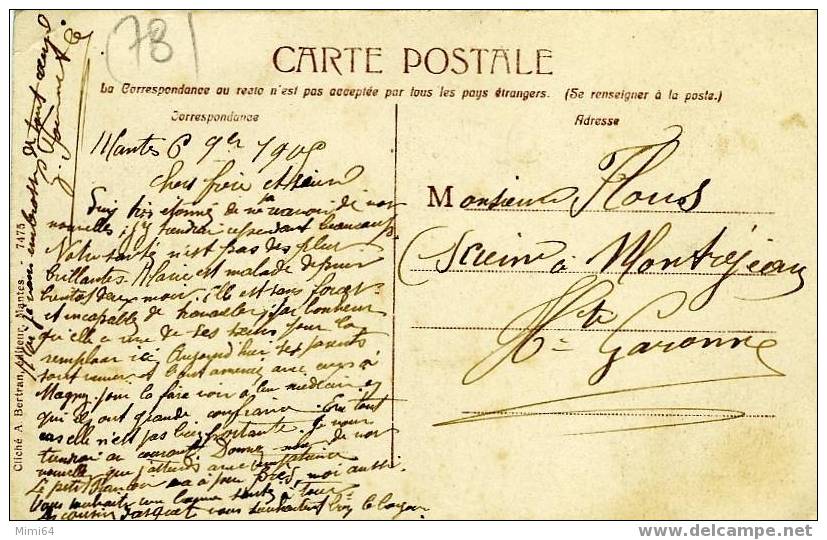 (78)
CARTE POSTALE
La Correspondance au recto n'est pas acceptée par tous les pays étrangers. (Se renseigner à la poste.)
Correspondance
Adresse
Mantes 6 9bre 1905
Chers frère et sœur
Suis très étonné de ne recevoir de vos
nouvelles, j'y tiendrai cependant beaucoup.
Notre santé n'est pas des plus
brillantes. Marie est malade depuis
bientôt deux mois. Elle est sans forces
et incapable de travailler, j'ai bonheur
qu'elle a une de ses sœurs pour la
remplacer ici. Aujourd'hui ses parents
sont venus et l'ont amenée avec eux à
Magny pour la faire voir à leur médecin en
qui ils ont grande confiance. En tout
cas elle n'est pas bien portante. Je vous
tiendrai au courant. Donnez-nous de vos
nouvelles que j'attends avec impatience
Le petit va à peu près, moi aussi.
Vous souhaite une bonne santé à tous
Les cousins Jasquet vous souhaitent bien le bonjour
Moi je vous embrasse de tout cœur
Monsieur Flous
Scierie à Montréjeau
Hte Garonne
Cliché A. Bertran, éditeur, Mantes - 7475
Mimi64
delcampe.net